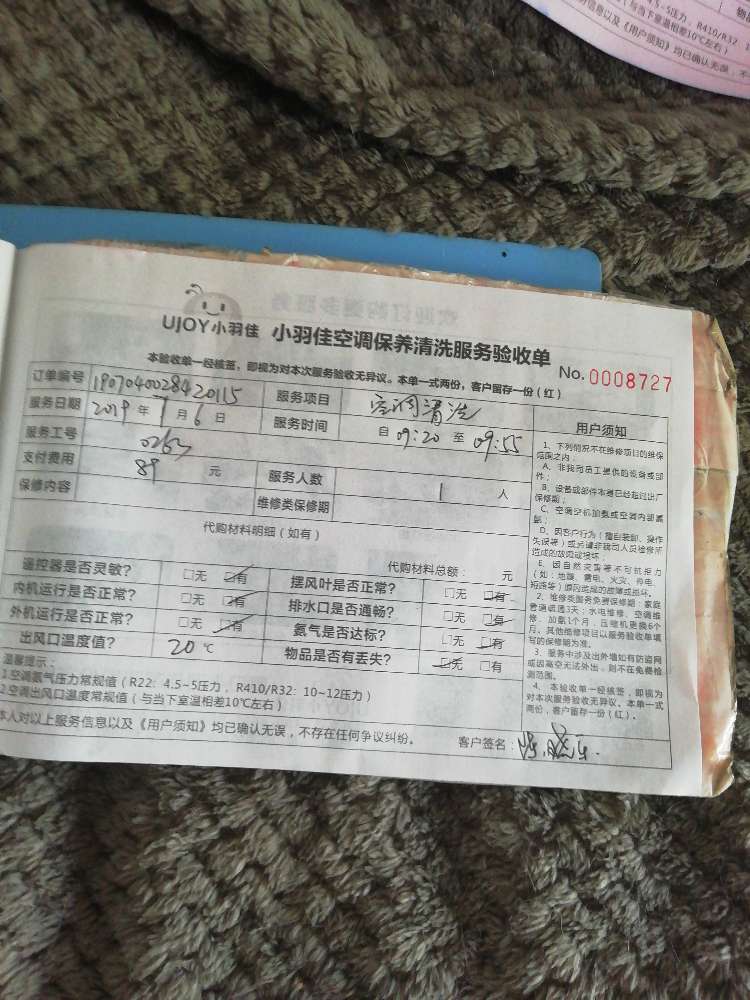 4.5~5压力，R410/R32
(与当下室温相差10℃左右)
信息以及《用户须知》均已确认无误，不
UJOY小羽佳 小羽佳空调保养清洗服务验收单
No. 0008727
本验收单一经核签，即视为对本次服务验收无异议。本单一式两份，客户留存一份（红）
订单编号 1907040028420115 服务项目 空调清洗
服务日期 2019 年 7 月 6 日 服务时间 自 09:20 至 09:55
服务工号 0263
支付费用 89 元 服务人数 1 人
保修内容 维修类保修期
代购材料明细（如有）
代购材料总额： 元
遥控器是否灵敏？ □无 □有 摆风叶是否正常？ □无 □有
内机运行是否正常？ □无 □有 排水口是否通畅？ □无 □有
外机运行是否正常？ □无 □有 氨气是否达标？ □无 □有
出风口温度值？ 20 ℃ 物品是否有丢失？ □无 □有
温馨提示：
1.空调氨气压力常规值（R22：4.5~5压力，R410/R32：10~12压力）
2.空调出风口温度常规值（与当下室温相差10℃左右）
本人对以上服务信息以及《用户须知》均已确认无误，不存在任何争议纠纷。 客户签名：
用户须知
1、下列情况不在维修项目的维保
范围之内：
A、非我司员工提供的设备或部
件；
B、设备或部件本身已经超过出厂
保修期；
C、空调空机加氨或空调内部漏
氨；
D、因客户行为（擅自装卸、操作
失误等）或另请非我司人员检修所
造成的故障或损坏；
E、因自然灾害等不可抗拒力
（如：地震、雷电、火灾、停电、
短路等）原因造成的故障或损坏。
2、维修类服务免费保修期：家庭
管道疏通3天；水电维修、空调维
修、加氨1个月；压缩机更换6个
月。其他维修项目以服务验收单填
写的保修期为准。
3、服务中涉及出外墙如有防盗网
或因高空无法外出，则不在免费检
测范围。
4、本验收单一经核签，即视为
对本次服务验收无异议。本单一式
两份，客户留存一份（红）。